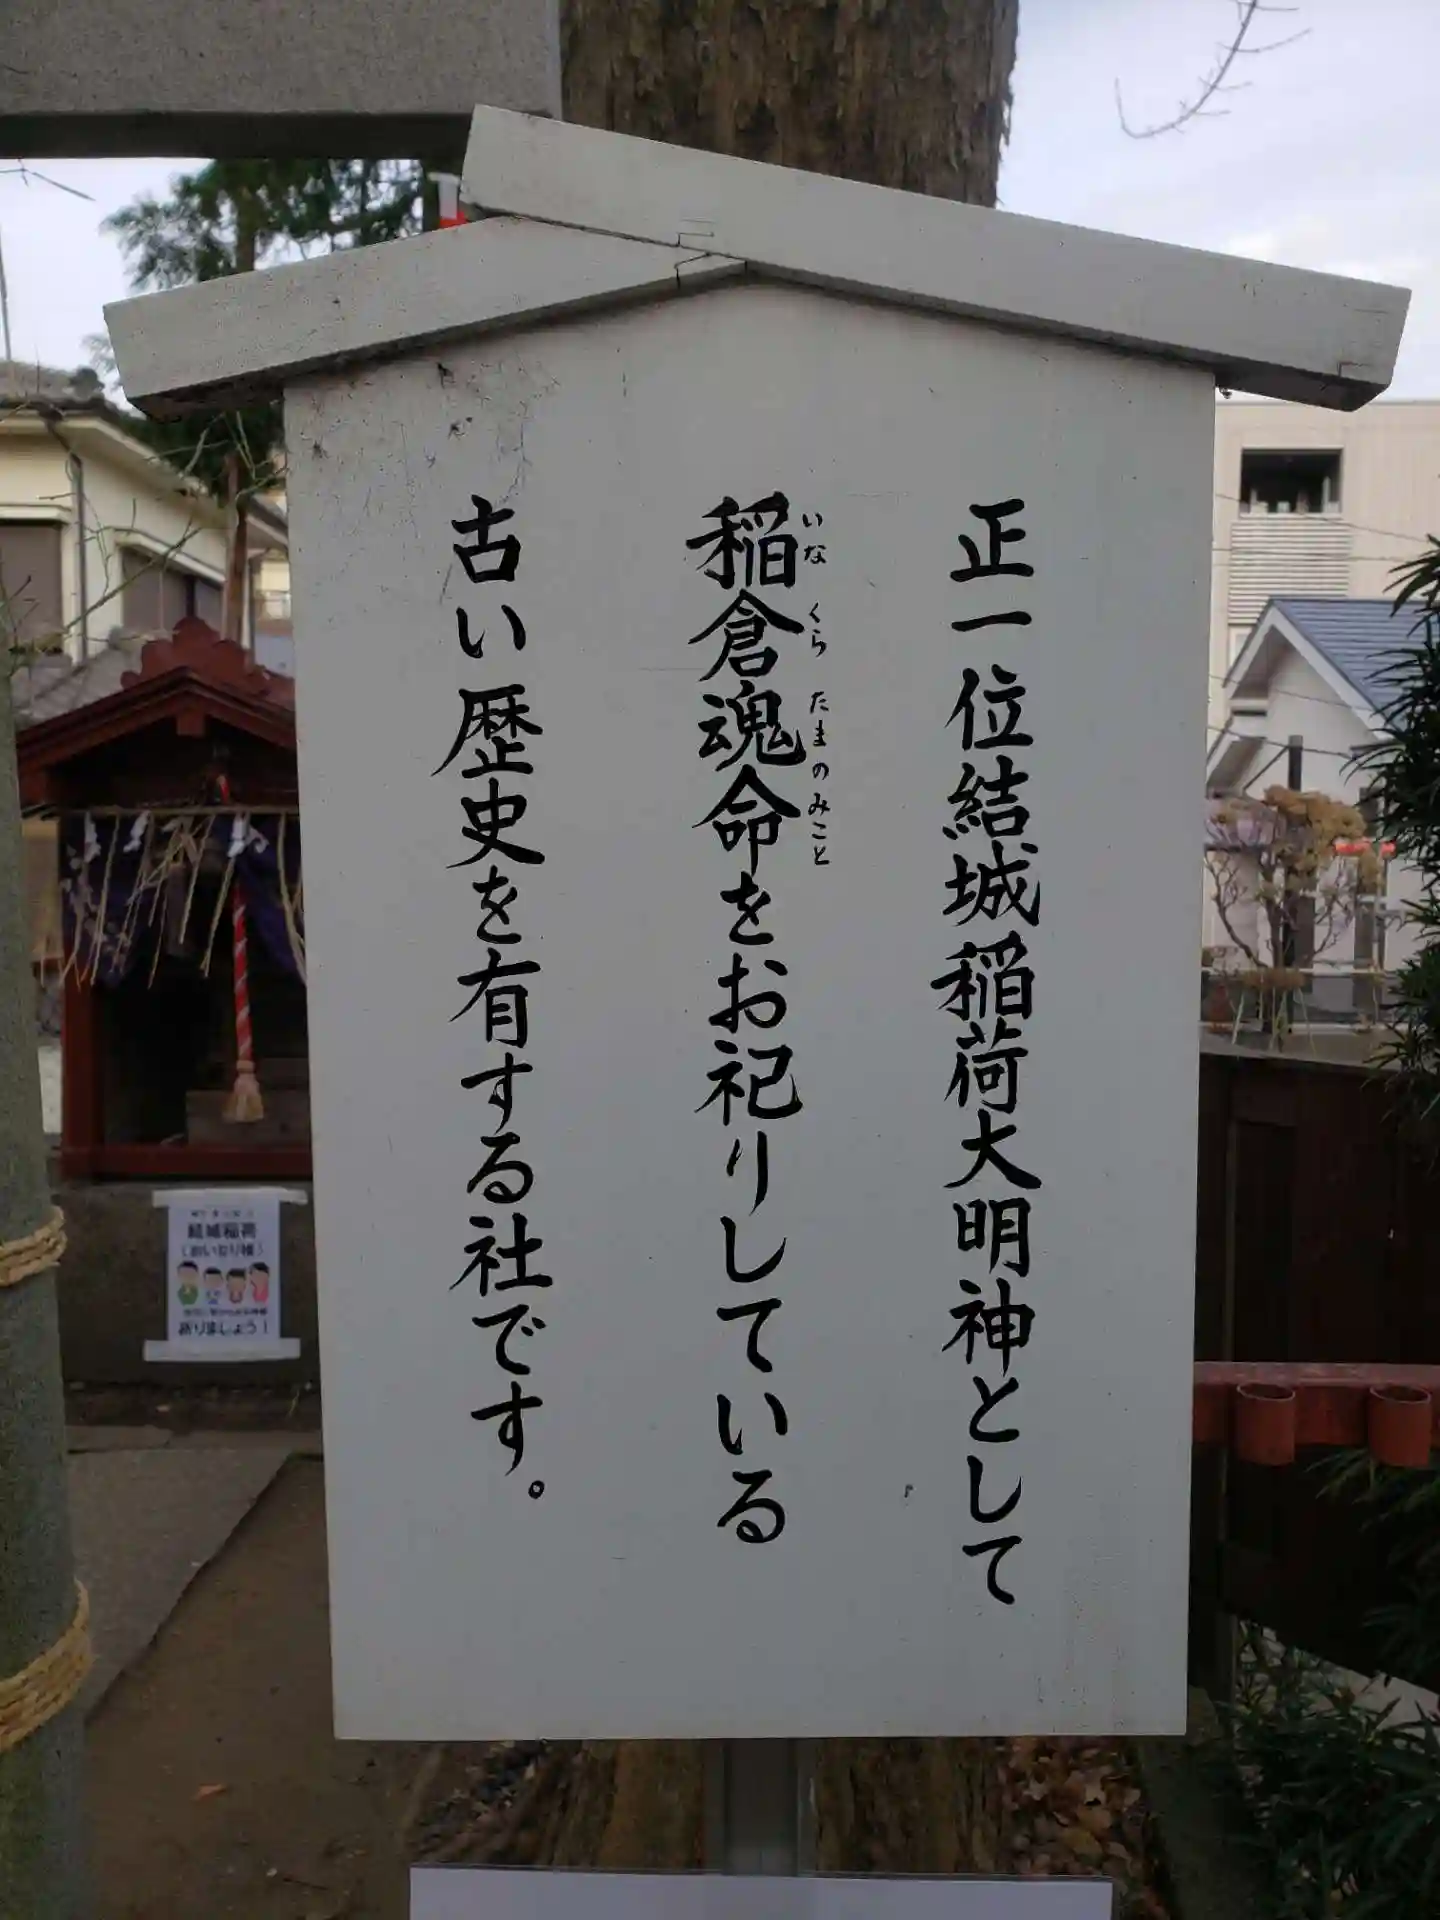 正一位結城稲荷大明神として
稲倉魂命をお祀りしている
いなくらたまのみこと
古い歴史を有する社です。
結城稲荷
(おいなり様)
祈りましょう!